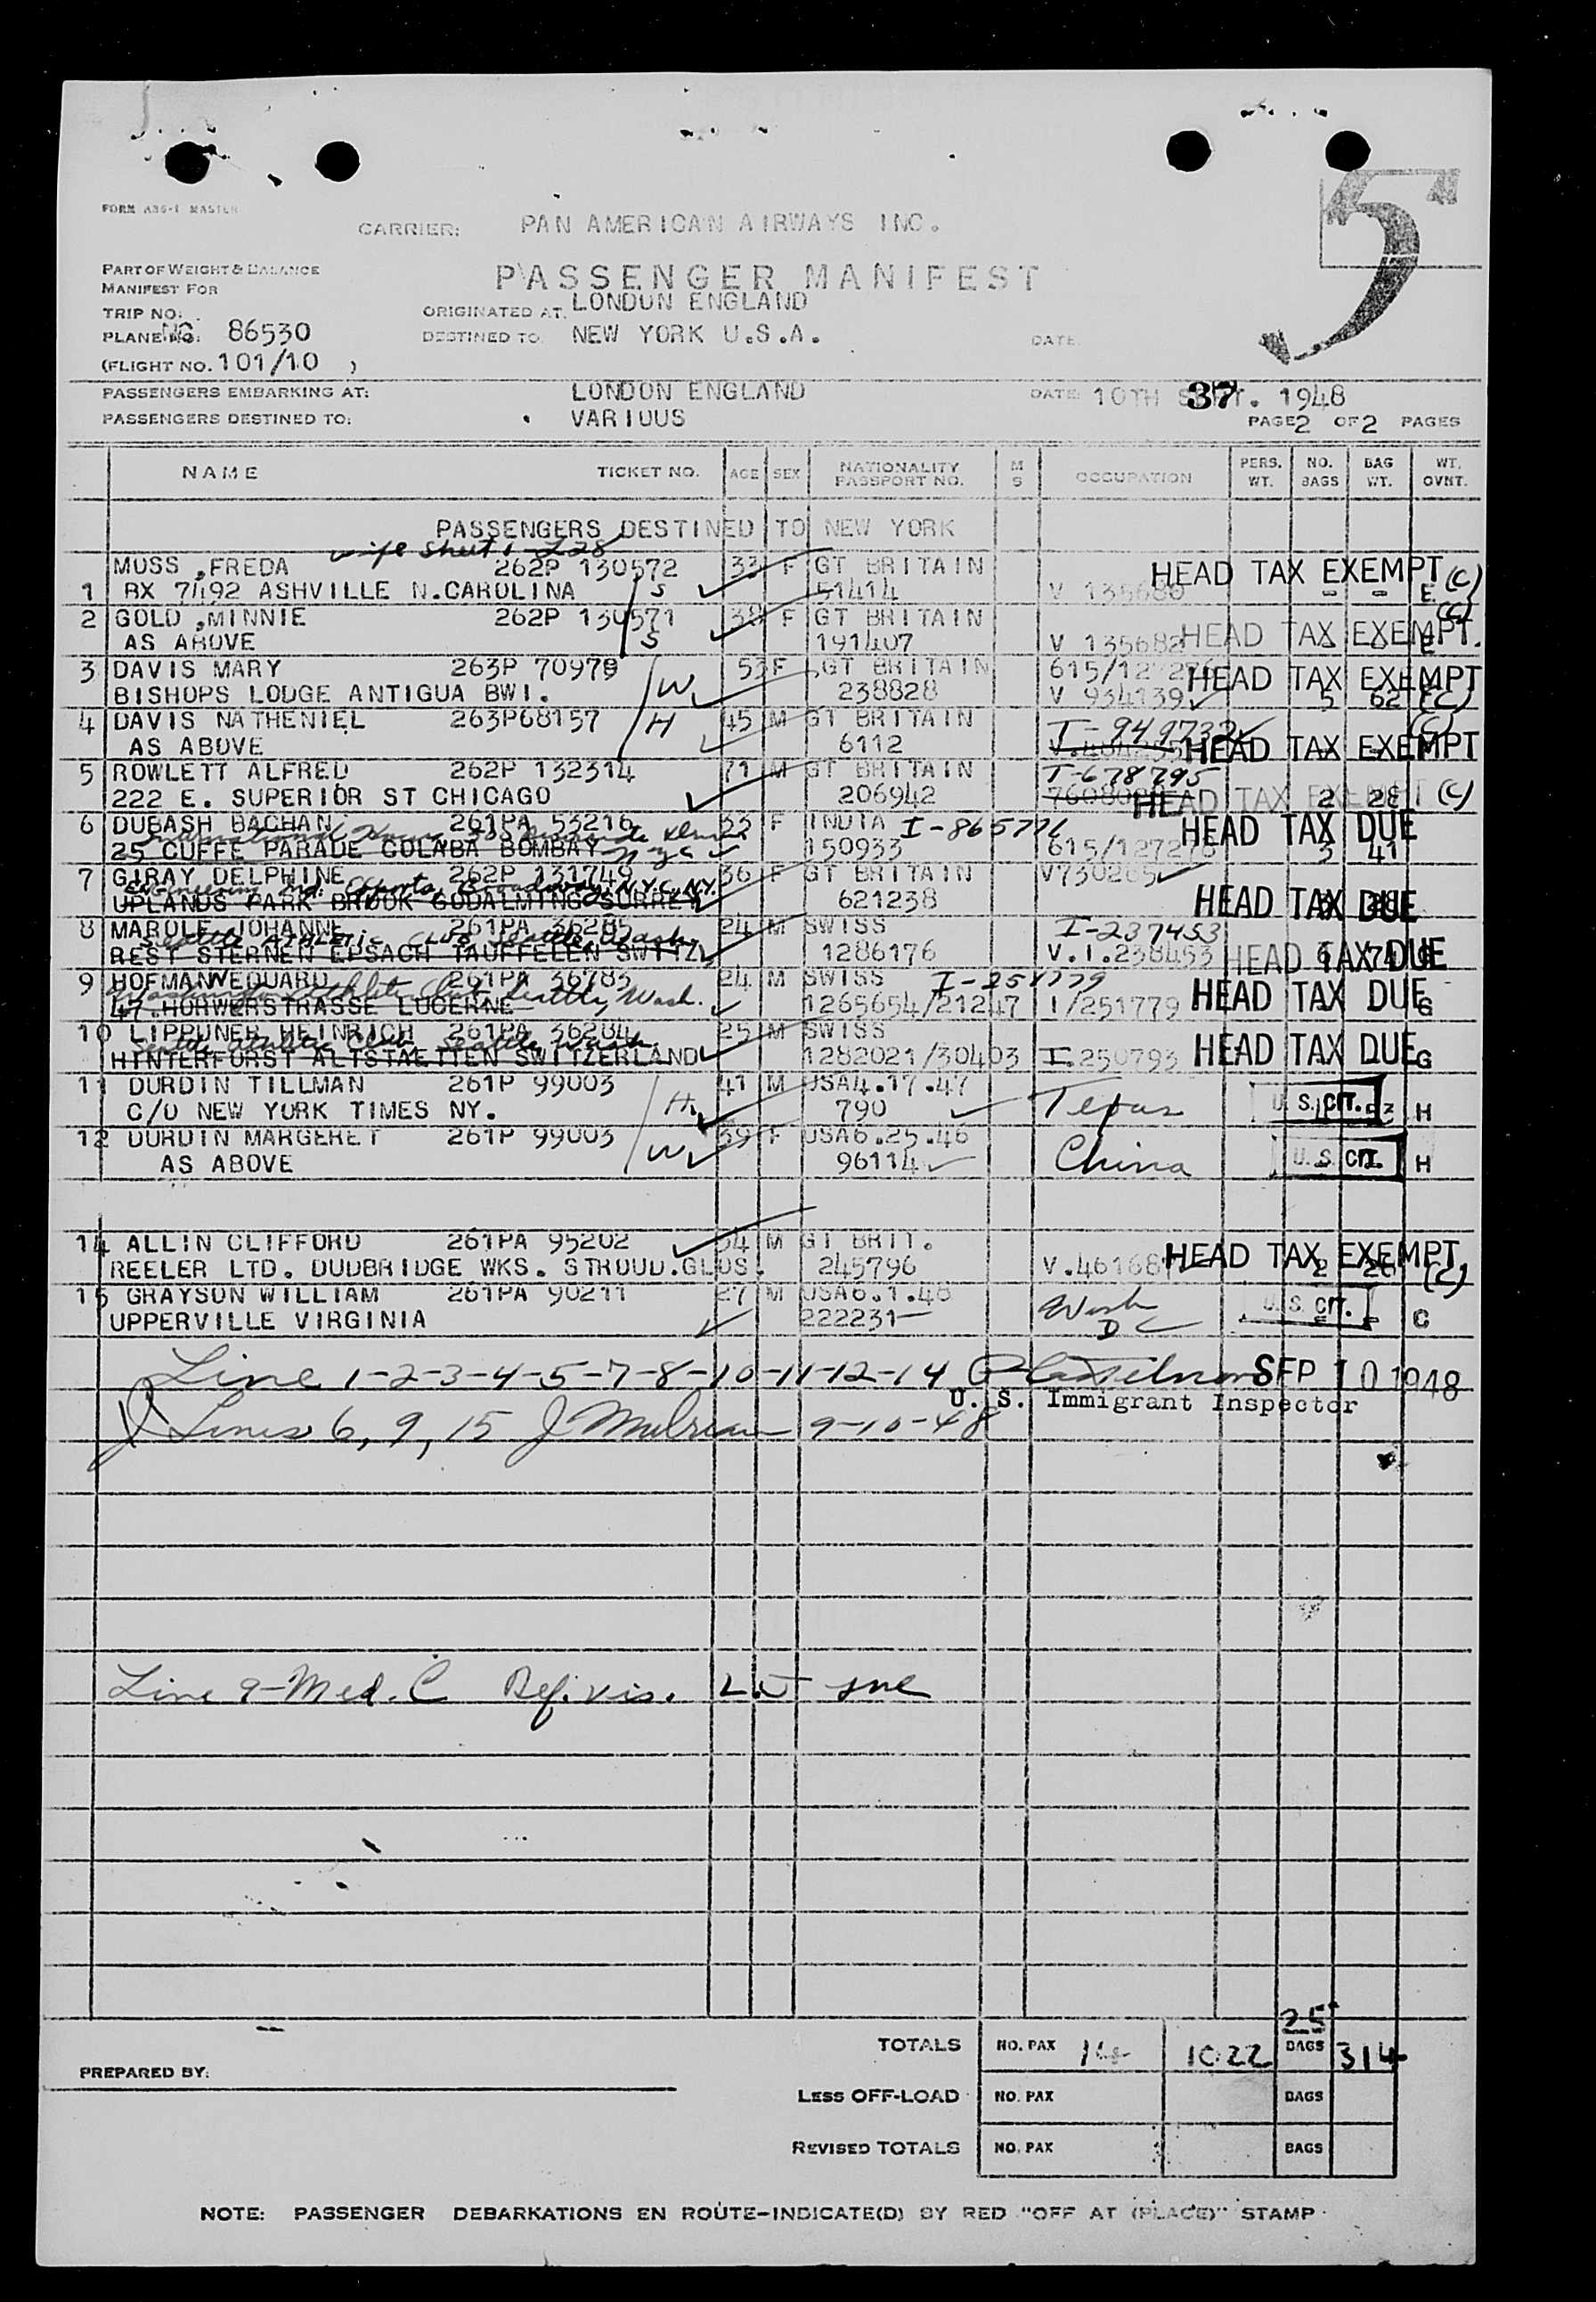 FORM ABS-1 MASTER
5
CARRIER: PAN AMERICAN AIRWAYS INC.
PART OF WEIGHT & BALANCE
MANIFEST FOR
PASSENGER MANIFEST
TRIP NO: ORIGINATED AT. LONDON ENGLAND
PLANE NO: 86530 DESTINED TO. NEW YORK U.S.A. DATE
(FLIGHT NO. 101/10 )
PASSENGERS EMBARKING AT: LONDON ENGLAND DATE 10TH SEPT. 1948
37
PASSENGERS DESTINED TO: VARIOUS PAGE 2 OF 2 PAGES
NAME TICKET NO. AGE SEX NATIONALITY PASSPORT NO. M S OCCUPATION PERS. WT. NO. BAGS BAG WT. WT. OVNT.
PASSENGERS DESTINED TO NEW YORK
wife sheet 1 L28
MOSS ,FREDA 262P 130572 33 F GT BRITAIN HEAD TAX EXEMPT (C)
1 BX 7492 ASHVILLE N.CAROLINA S 51414 V 135680 - - E.
2 GOLD ,MINNIE 262P 130571 38 F GT BRITAIN (C)
AS ABOVE S 191407 V 135682 HEAD TAX EXEMPT.
3 DAVIS MARY 263P 70979 53 F GT BRITAIN 615/127276 HEAD TAX EXEMPT
BISHOPS LODGE ANTIGUA BWI. W 238828 V 934139 5 62 (C)
4 DAVIS NATHENIEL 263P68157 H 45 M GT BRITAIN I-949732 (C)
AS ABOVE 6112 HEAD TAX EXEMPT
5 ROWLETT ALFRED 262P 132314 71 M GT BRITAIN I-678795
222 E. SUPERIOR ST CHICAGO 206942 HEAD TAX EXEMPT 2 28 (C)
6 DUBASH BACHAN 261PA 53216 33 F INDIA I-865776 HEAD TAX DUE
25 CUFFE PARADE COLABA BOMBAY N.Y.C 150933 615/127276 3 41
7 GIRAY DELPHINE 262P 131749 36 F GT BRITAIN V730265
Engineering Ind. Exports, Broadway, N.Y.C. N.Y.
UPLANDS PARK BROOK GODALMING SURREY 621238 HEAD TAX DUE
8 MAROLF JOHANNE 261PA 36285 24 M SWISS I-237453
Seattle Athletic Club Seattle, Wash.
REST STERNEN EPSACH TAUFFELEN SWITZL 1286176 V.I.238453 HEAD TAX DUE
9 HOFMANN EDUARD 261PA 36783 24 M SWISS I-251779
Athletic Club Seattle, Wash.
47 HORWERSTRASSE LUCERNE 1265654/21247 I/251779 HEAD TAX DUE G
10 LIPPUNER HEINRICH 261PA 36284 25 M SWISS
Seattle Athletic Club Seattle Wash.
HINTERFORST ALTSTAETTEN SWITZERLAND 1282021/30403 I.250793 HEAD TAX DUE G
11 DURDIN TILLMAN 261P 99003 H 41 M USA4.17.47
C/O NEW YORK TIMES NY. 790 Texas U.S. CIT. H
12 DURDIN MARGERET 261P 99003 W 39 F USA6.25.46
AS ABOVE 96114 China U.S. CIT. H
14 ALLIN CLIFFORD 261PA 95202 54 M GT BRIT. HEAD TAX EXEMPT.
REELER LTD. DUDBRIDGE WKS. STROUD.GLOS. 245796 2 20 (C)
15 GRAYSON WILLIAM 261PA 90211 27 M USA6.1.48 Wash U.S. CIT.
UPPERVILLE VIRGINIA 222231 DC C
Line 1-2-3-4-5-7-8-10-11-12-14 SEP 10 1948
U. S. Immigrant Inspector
Lines 6, 9, 15 9-10-48
Line 9-Med. C Def. vis.
25
TOTALS NO. PAX 14 1022 BAGS 314
PREPARED BY:
LESS OFF-LOAD NO. PAX BAGS
REVISED TOTALS NO. PAX BAGS
NOTE: PASSENGER DEBARKATIONS EN ROUTE-INDICATE(D) BY RED "OFF AT (PLACE)" STAMP